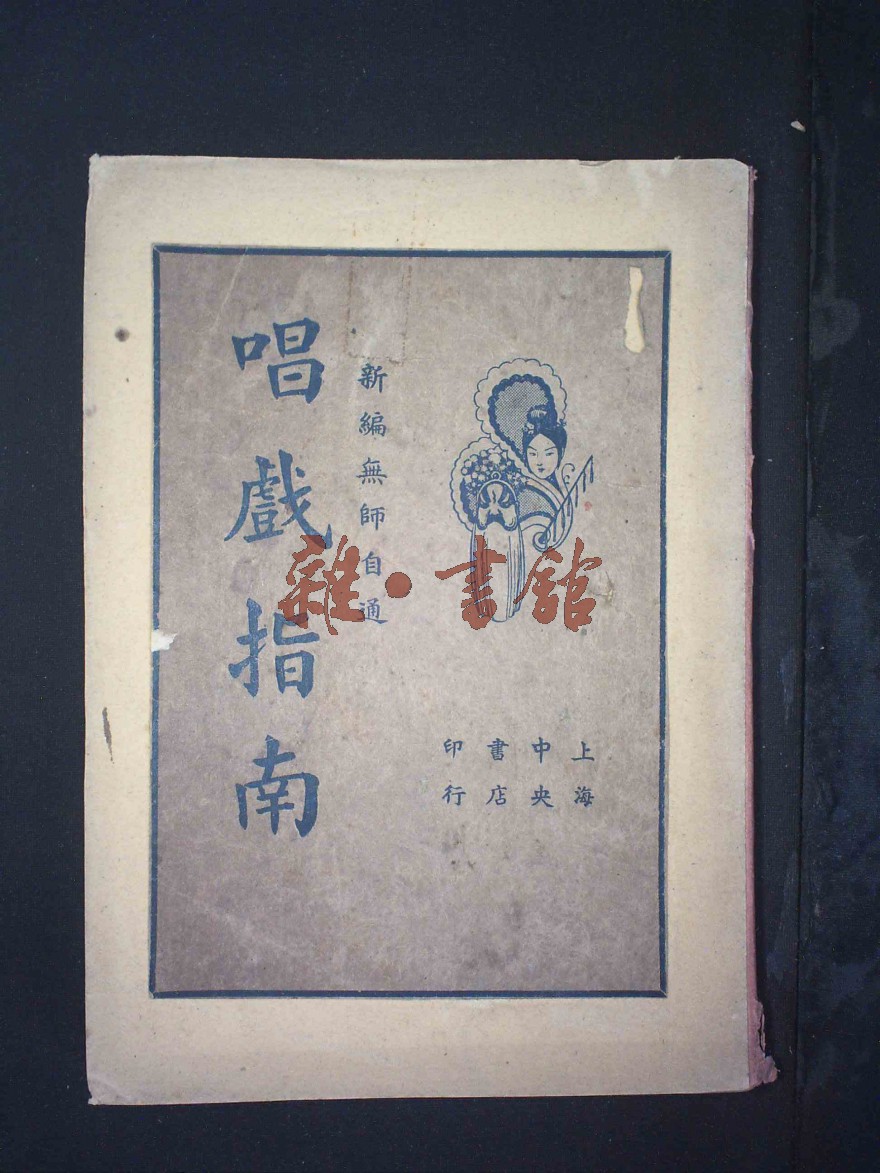 新編無師自通
唱戲指南
上海
中央
書店
印行
雜·書館